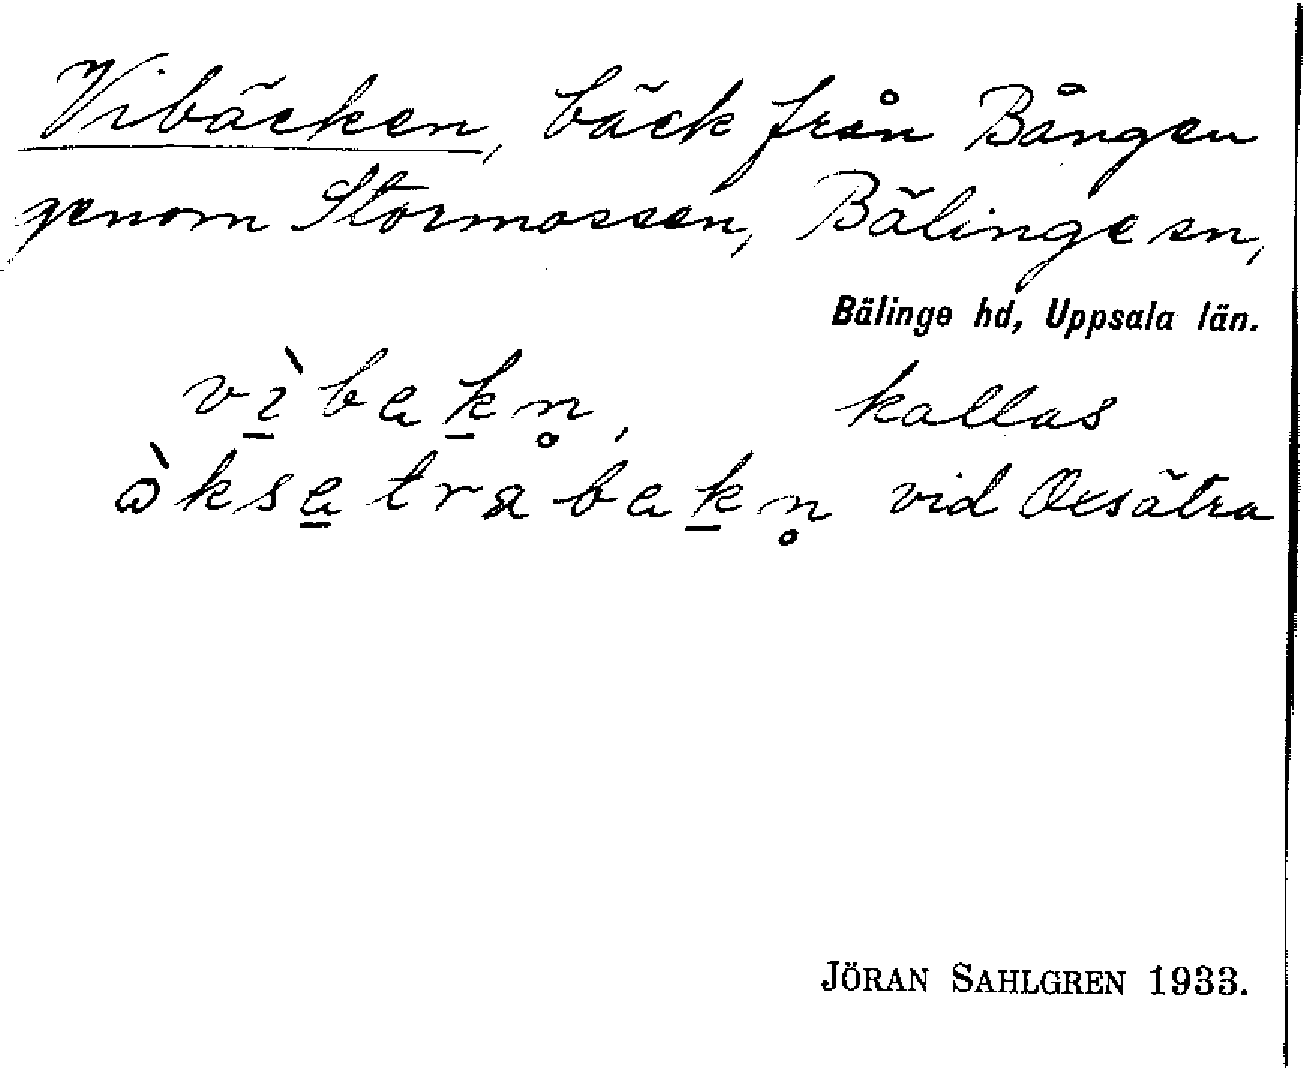 Vibäcken, bäck från Bången
genom Stormossen, Bälinge sn,
Bälinge hd, Uppsala län.
vı̱̀bak̠n̥, kallas
ὼksa̠trabak̠n̥ vid Oxsätra
JÖRAN SAHLGREN 1933.